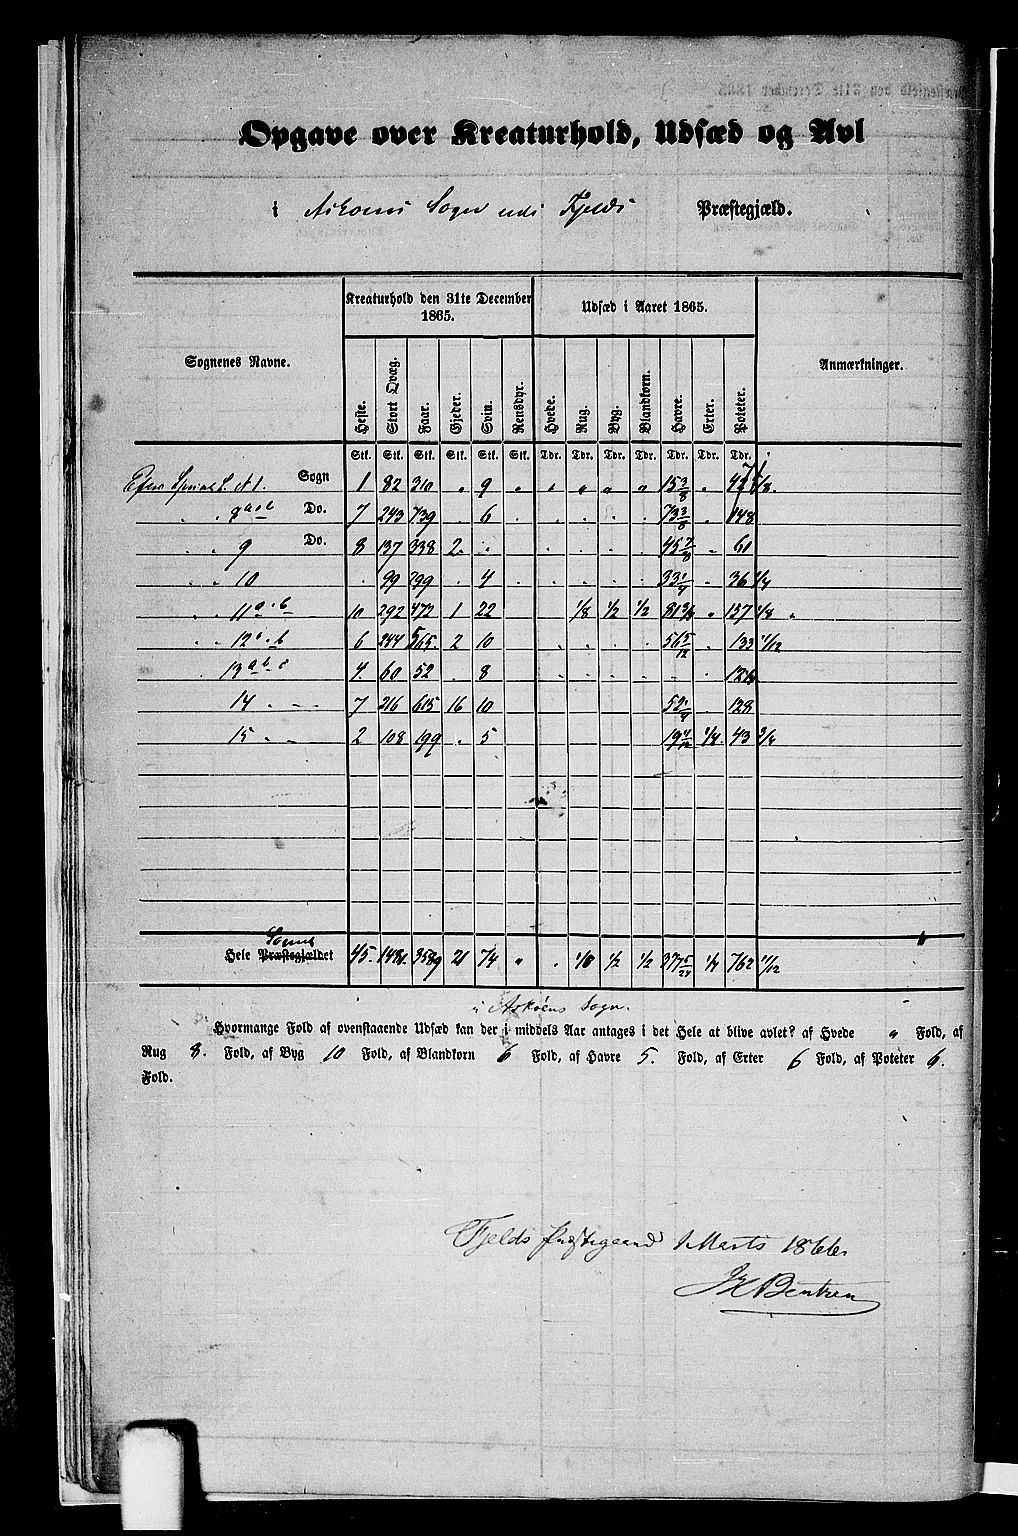 Opgave over Kreaturhold, Udsæd og Avl
i Askøens Sogn udi Fjelds Præstegjæld.
Sognenes Navne. Kreaturhold den 31te December 1865. Udsæd i Aaret 1865. Anmærkninger.
Heste. Stort Qvæg. Faar. Gjeder. Sviin. Rensdyr. Hvede. Rug. Byg. Blandkorn. Havre. Erter. Poteter.
Stk. Stk. Stk. Stk. Stk. Stk. Tdr. Tdr. Tdr. Tdr. Tdr. Tdr. Tdr.
Sogn 1 82 310 " 9 " " " " " 15 3/8 "
" " 8 a b Do. 7 243 739 . 6 . . . . . 73 3/8 . 148
" " 9 Do. 8 137 338 2. . . . . . 45 7/8 " 61
" " 10 . 99 299 . 4 . . . . . 33 1/4 . 36 1/4
" " 11 a b 10 292 472 1 22 1/8 1/2 1/2 " 137 1/8 "
" " 12 a b 6 244 565. 2 10 . . . . 56 5/12 . 133 1/12
" 13 a b c 4. 60 52 . 8 . . . . . .
" 14 " " 7 216 615 16 10 52 1/4 . 128
15 " " 2 108 199 . 5 1/4. 43 3/4
Hele Præstegjældet Sognet 45. 1481. 3589 21 74 " . 1/8 1/2 1/2 377 5/24 1/4 762 1/12
i Askøens Sogn.
Hvormange Fold af ovenstaaende Udsæd kan der i middels Aar antages i det Hele at blive avlet? af Hvede " Fold, af
Rug 8. Fold, af Byg 10 Fold, af Blandkorn 6 Fold, af Havre 5. Fold, af Erter 6 Fold, af Poteter 6.
Fold.
Fjelds Præstegaard 1 Marts 1866.